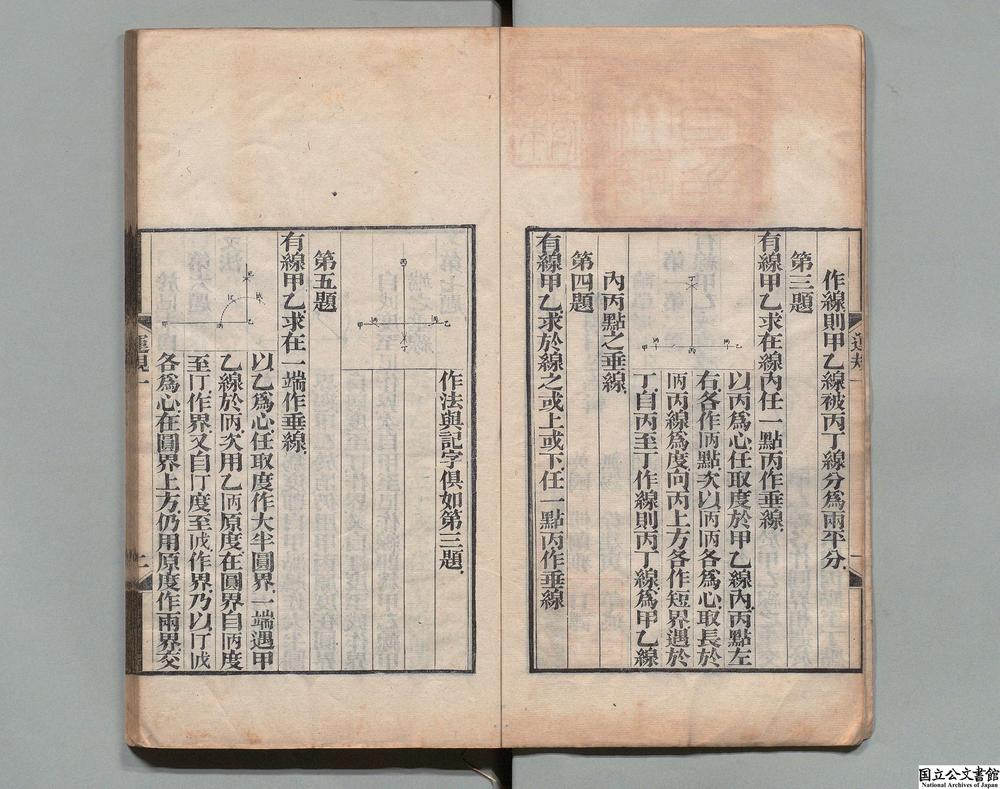 作線則甲乙線被丙丁線分爲兩平分
第三題
有線甲乙求在線內任一點丙作垂線
以丙爲心任取度於甲乙線內丙點左
右各作𠰳點次以𠰳𠰳各爲心取長於
𠰳丙線爲度向丙上方各作短界遇於
丁自丙至丁作線則丙丁線爲甲乙線
內丙點之垂線
第四題
有線甲乙求於線之或上或下任一點丙作垂線
作法與記字俱如第三題
第五題
有線甲乙求在一端作垂線
以乙爲心任取度作大半圓界一端遇甲
乙線於𠰳次用乙𠰳原度在圓界自𠰳度
至叮作界又自叮度至作界乃以叮
各爲心在圓界上方仍用原度作兩界交
運規一
国立公文書館
National Archives of Japan